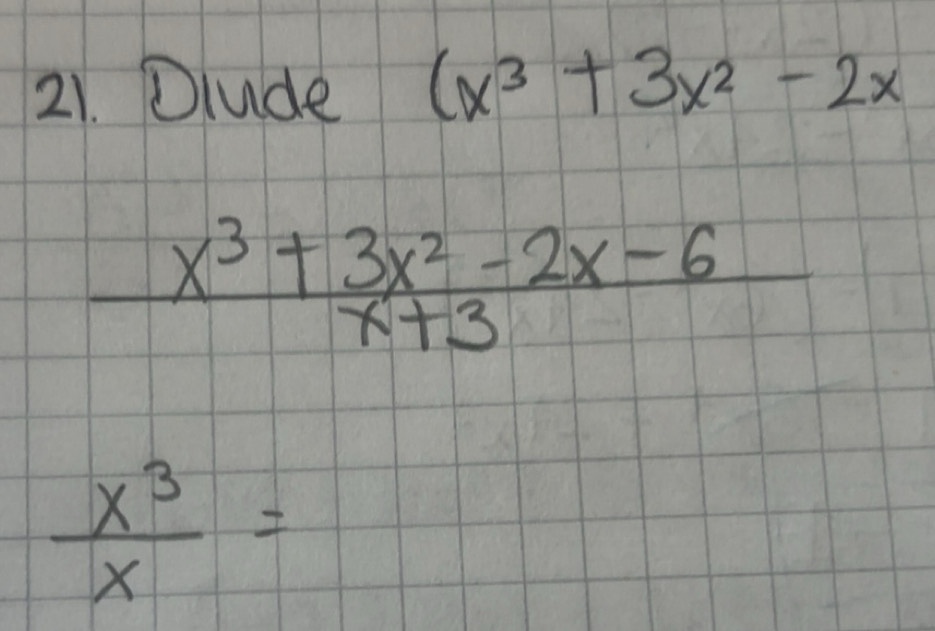 21. Divide (x³ + 3x² - 2x
x³ + 3x² - 2x - 6
x+3
x³
x =